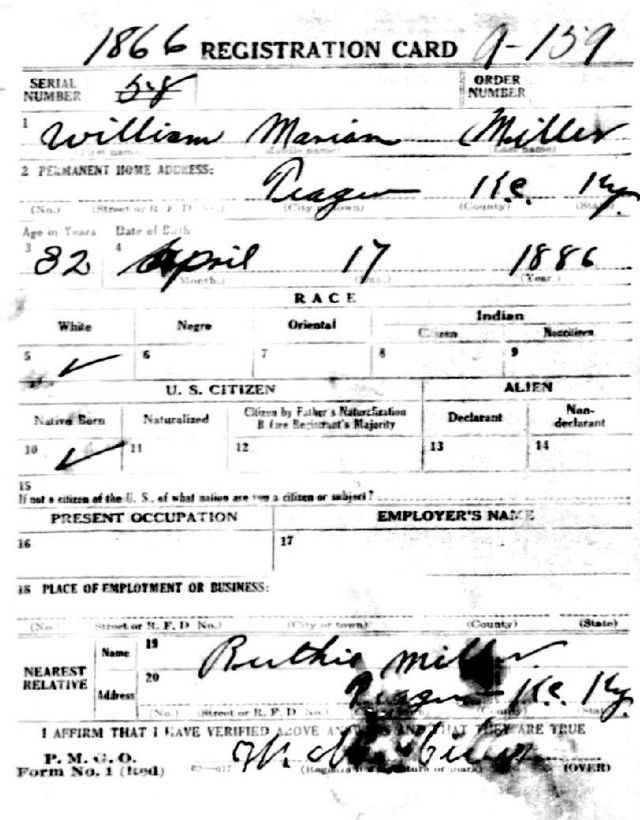 1866 REGISTRATION CARD 9-159
SERIAL NUMBER 58 ORDER NUMBER
1 William Marion Miller
(First name) (Middle name) (Last name)
2 PERMANENT HOME ADDRESS:
Teague Ky.
(No.) (Street or R. F. D. No.) (City or town) (County) (State)
Age in Years Date of Birth
3 32 4 April 17 1886
(Month.) (Day.) (Year.)
RACE
White Negro Oriental Indian
Citizen Noncitizen
5 ✓ 6 7 8 9
U. S. CITIZEN ALIEN
Native Born Naturalized Citizen by Father's Naturalization Before Registrant's Majority Declarant Non-declarant
10 ✓ 11 12 13 14
15
If not a citizen of the U. S., of what nation are you a citizen or subject?
PRESENT OCCUPATION EMPLOYER'S NAME
16 17
18 PLACE OF EMPLOYMENT OR BUSINESS:
(No.) Street or R. F. D. No.) (City or town) (County) (State)
NEAREST RELATIVE Name 19 Ruthie Miller
Address 20 Teague Ky.
(No.) (Street or R. F. D. No.) (State)
I AFFIRM THAT I HAVE VERIFIED ABOVE ANSWERS AND THAT THEY ARE TRUE
P. M. G. O.
Form No. 1 (Red) (Registrant's signature or mark) (OVER)